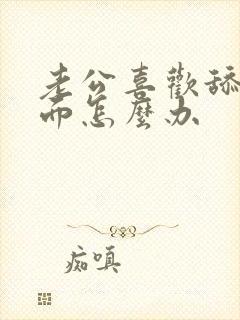 老公喜歡舔
而怎麼办
痴嗔